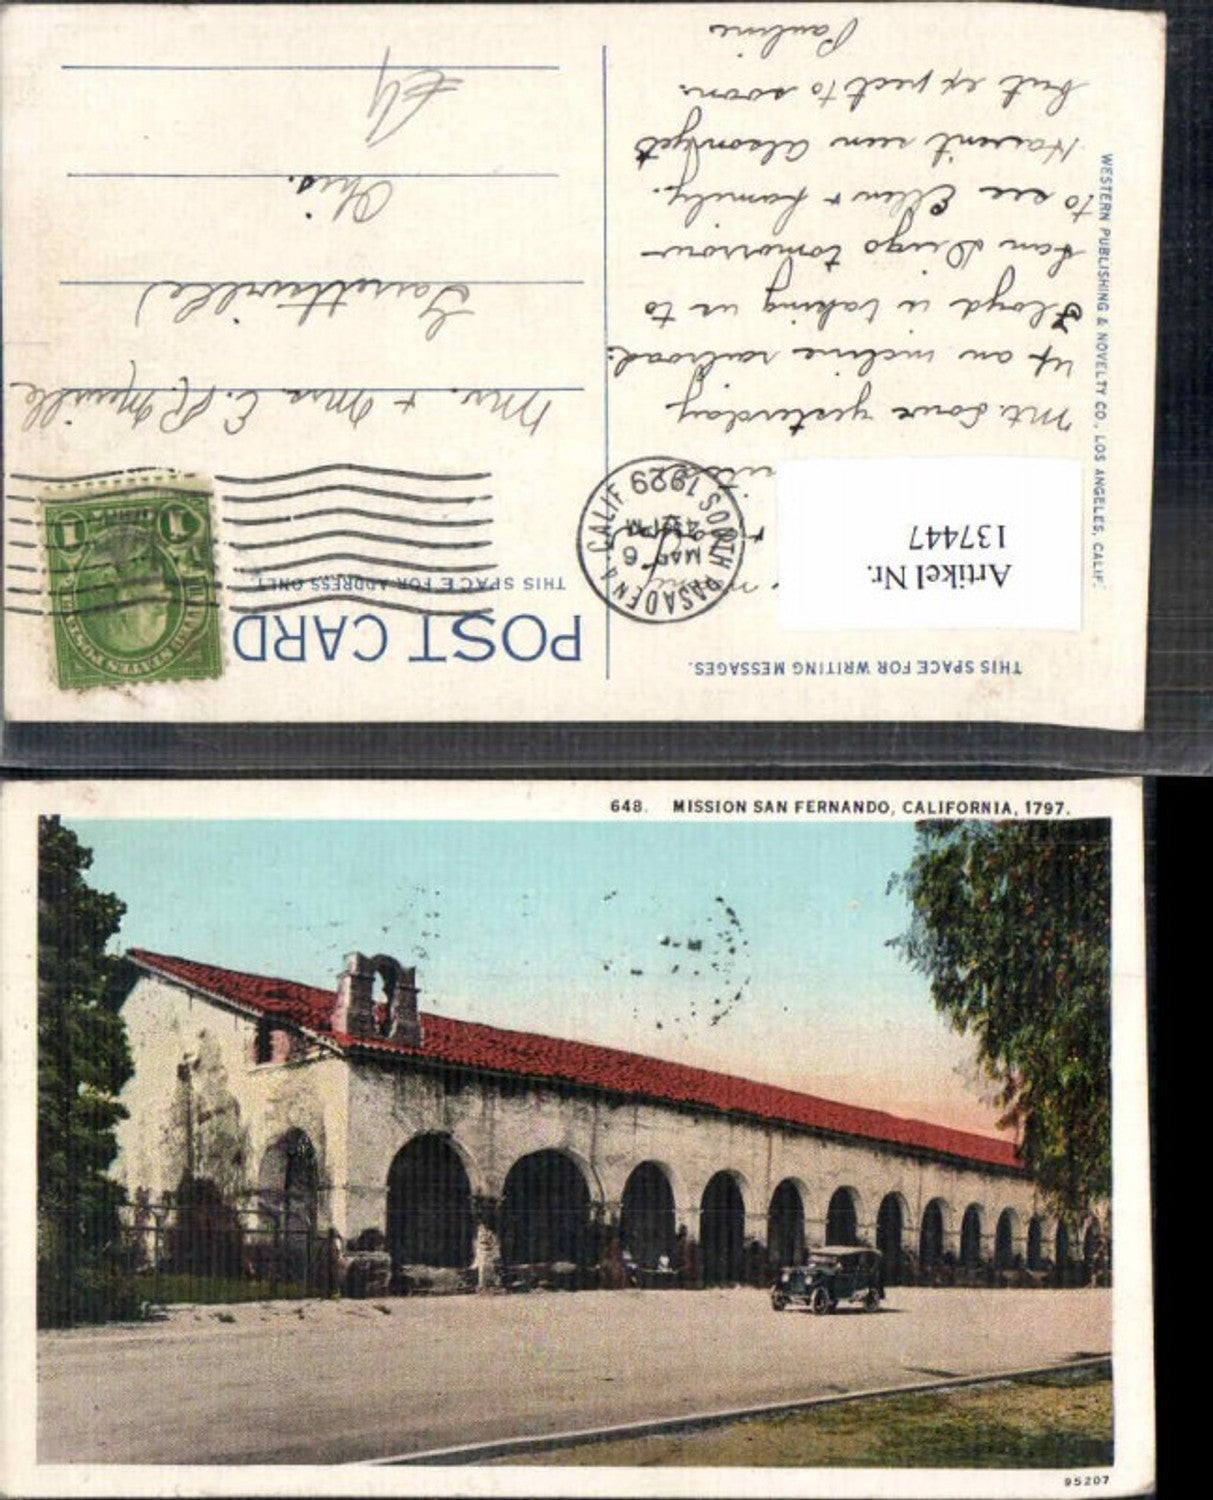 THIS SPACE FOR WRITING MESSAGES.
POST CARD
THIS SPACE FOR ADDRESS ONLY.
Artikel Nr.
137447
SOUTH PASADENA, CALIF
MAR 6
4 PM
1929
Mt. Lowe yesterday
up an incline railroad.
Floyd is taking us to
San Diego tomorrow
to see Ellen & family.
Haven't seen yet
but expect to soon.
Pauline
Mr. + Mrs. E. R.
Garrettsville
Ohio.
WESTERN PUBLISHING & NOVELTY CO., LOS ANGELES, CALIF.
648. MISSION SAN FERNANDO, CALIFORNIA, 1797.
95207